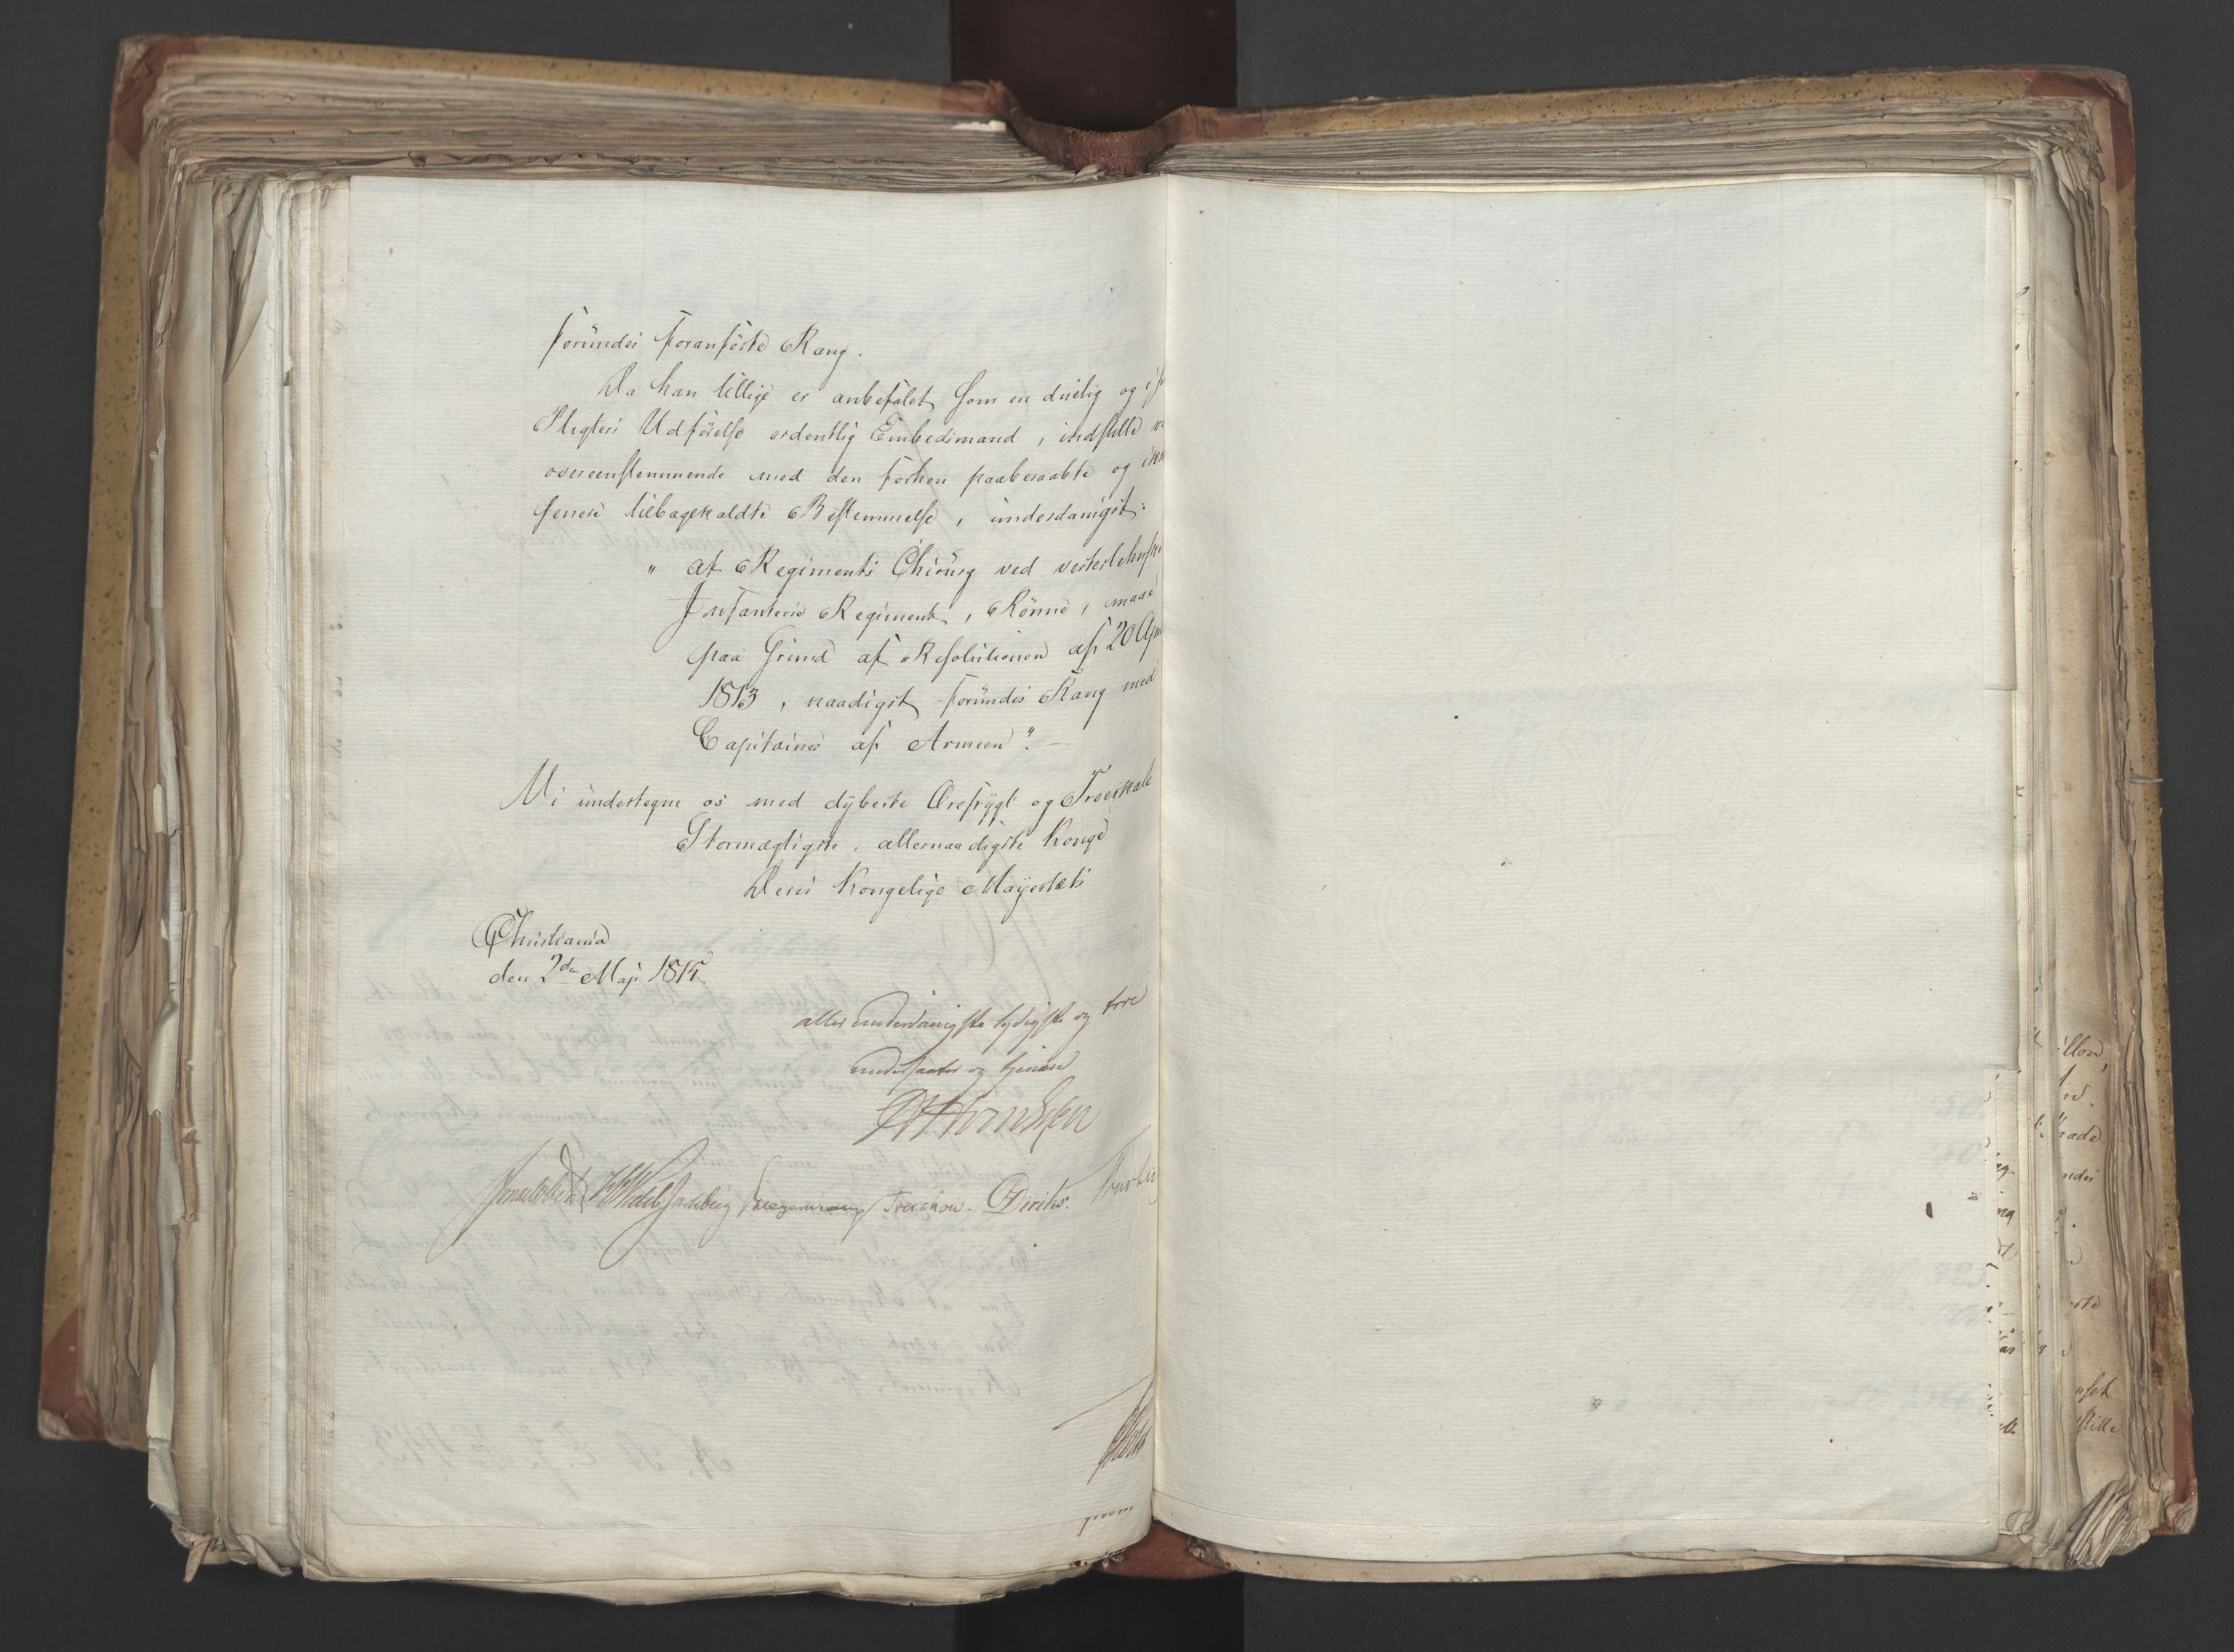 forundes foranførte Rang.
Da han tillige er anbefalet som en duelig og i
Pligters Udførelse ordentlig Embedsmand, indstille
overeensstemmende med den forhen paaberaabte og
senere tilbagekaldte Bestemmelse, underdanigst:
" at Regiments Chirurg ved vesterlehnske
Infanterie Regiment, Rønne, maae
paa Grund af Resolutionen af 20
1813, naadigst forundes Rang med
Capitainer af Armeen". —
Vi undertegne os med dybeste Ærefrygt og Troeskab
Stormægtigste, allernaadigste Konge
Deres Kongelige Mayestæts
Christiania
den 2den Maji 1815.
allerunderdanigste lydigste og troe
undersaatter og tjenere
Sommerhielm HWedel Jarlsberg Treschow. Diriks.